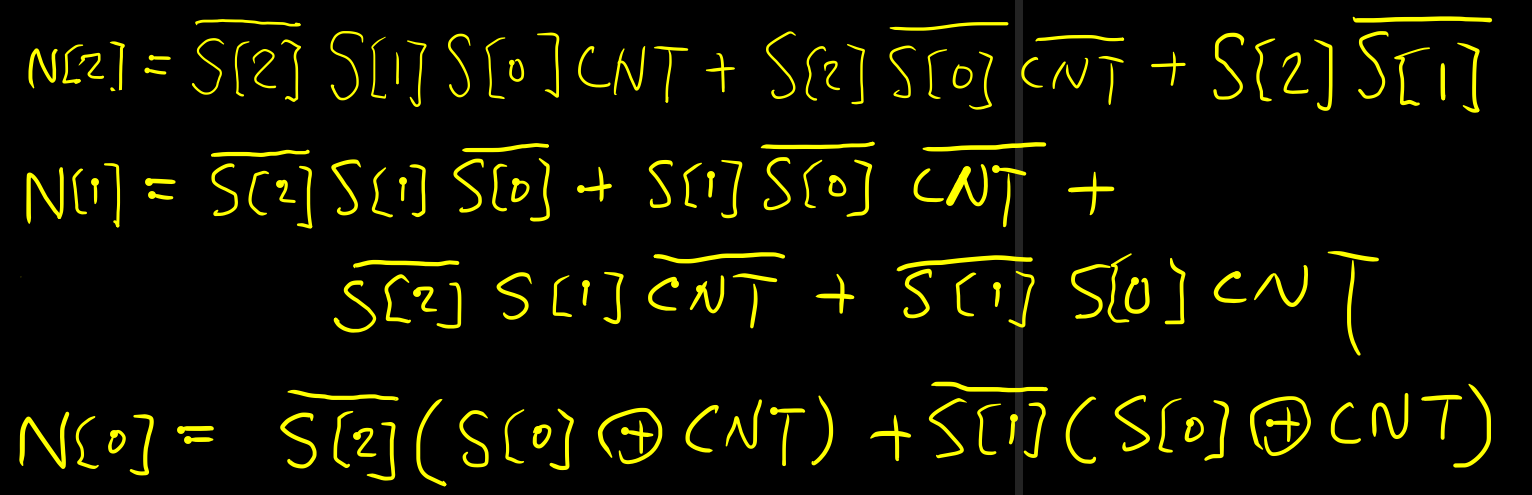 N[2] = \overline{S[2]} S[1] S[0] CNT + S[2] \overline{S[0]} \overline{CNT} + S[2] \overline{S[1]}
N[1] = \overline{S[2]} S[1] \overline{S[0]} + S[1] \overline{S[0]} \overline{CNT} +
\overline{S[2]} S[1] \overline{CNT} + \overline{S[1]} S[0] CNT
N[0] = \overline{S[2]} (S[0] ⊕ CNT) + \overline{S[1]} (S[0] ⊕ CNT)